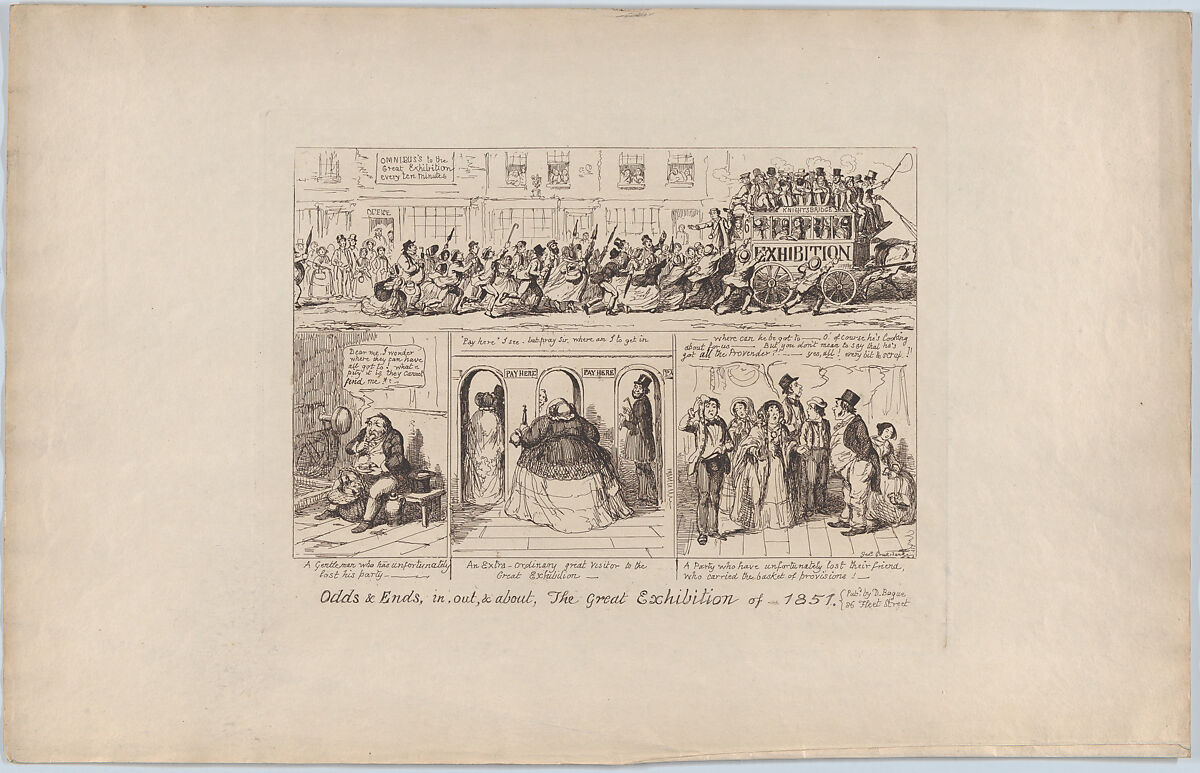 OMNIBUS'S to the
Great Exhibition
every ten minutes
OFFICE
KNIGHTSBRIDGE
EXHIBITION
Dear me, I wonder
where they can have
all got to! what a
pity it is they cannot
find me!!!
"Pay here" I see - but pray sir, where am I to get in
PAY HERE
PAY HERE
P
where can he be got to — O! of course he's looking
about for us — But, you don't mean to say that he's
got all the Provender!! — yes, all! every bit & scrap!!
Geo. Cruikshank
A Gentleman who has unfortunately
lost his party —
An Extra-ordinary great Visitor to the
Great Exhibition —
A Party who have unfortunately lost their friend,
who carried the basket of provisions! —
Odds & Ends, in, out, & about, The Great Exhibition of - 1851.
Pubd by D. Bogue
86 Fleet Street